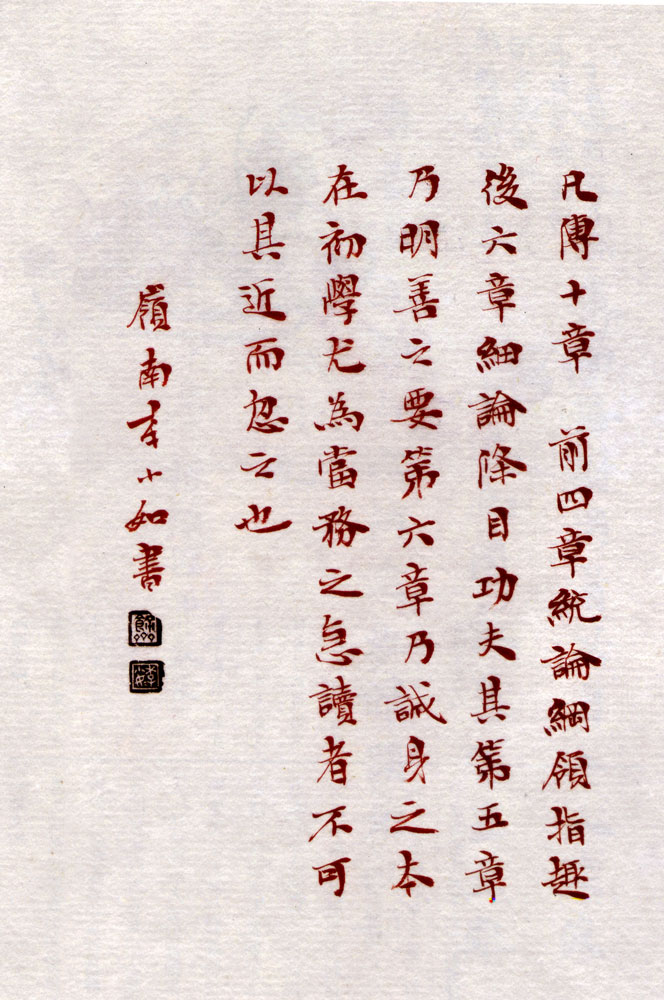 凡傳十章　前四章統論綱領指趣
後六章細論條目功夫其第五章
乃明善之要第六章乃誠身之本
在初學尤為當務之急讀者不可
以其近而忽之也
嶺南李小如書